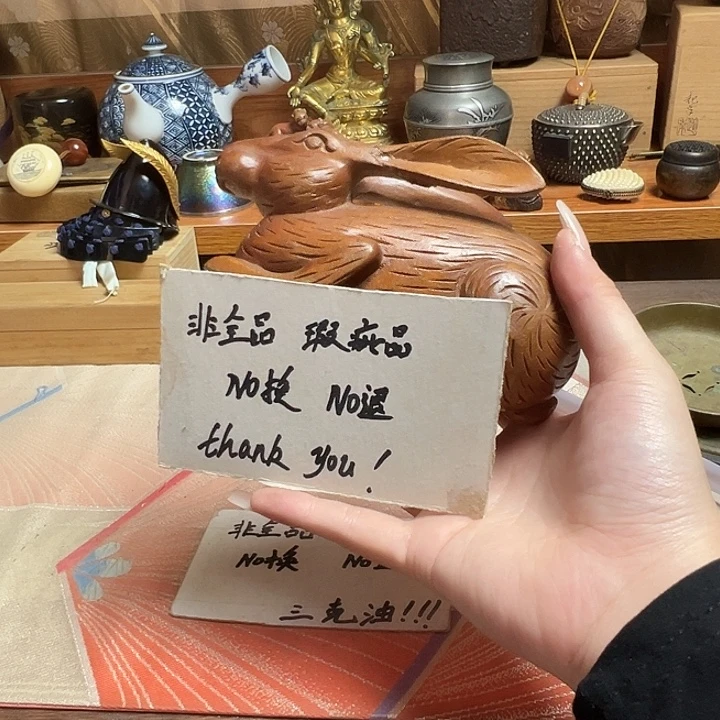 非全品 瑕疵品
NO换 NO退
thank you!
非全品
NO换 NO
三克油!!!